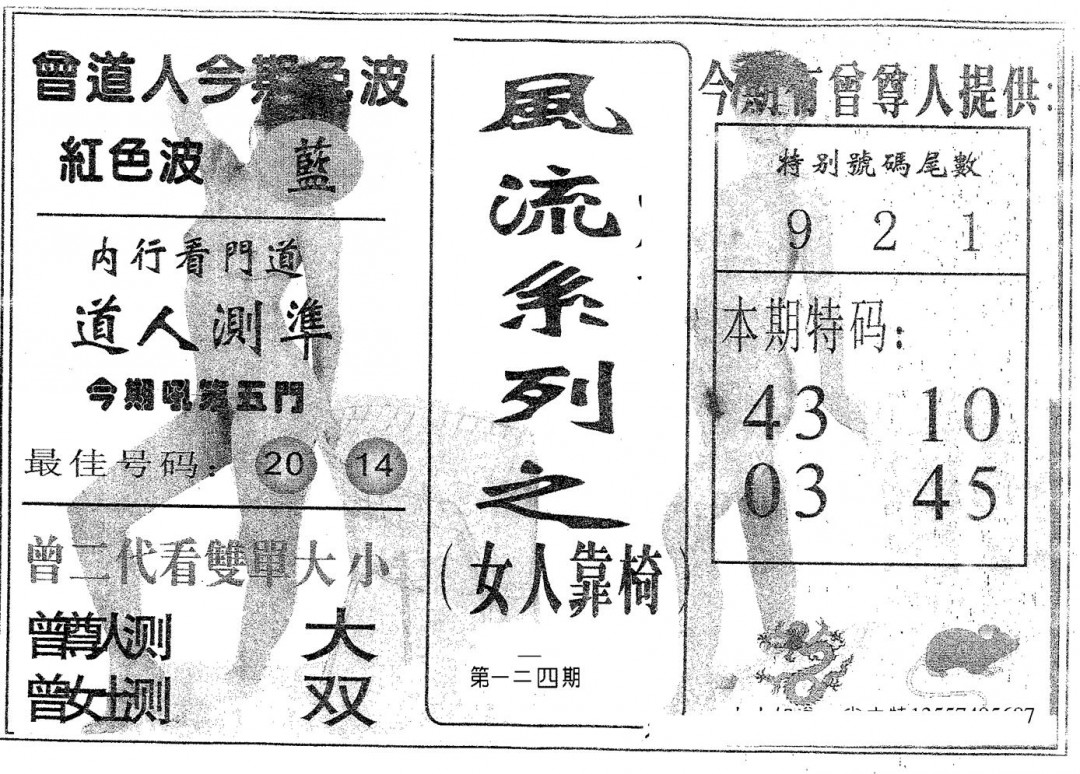 曾道人今期色波
紅色波 藍
内行看門道
道人測準
今期吼第五門
最佳号码: 20 14
曾二代看雙單大小
曾尊人测 大
曾女士测 双
風流系列之
(女人靠椅)
第一二四期
今期有曾尊人提供:
特别號碼尾數
9 2 1
本期特码:
43 10
03 45